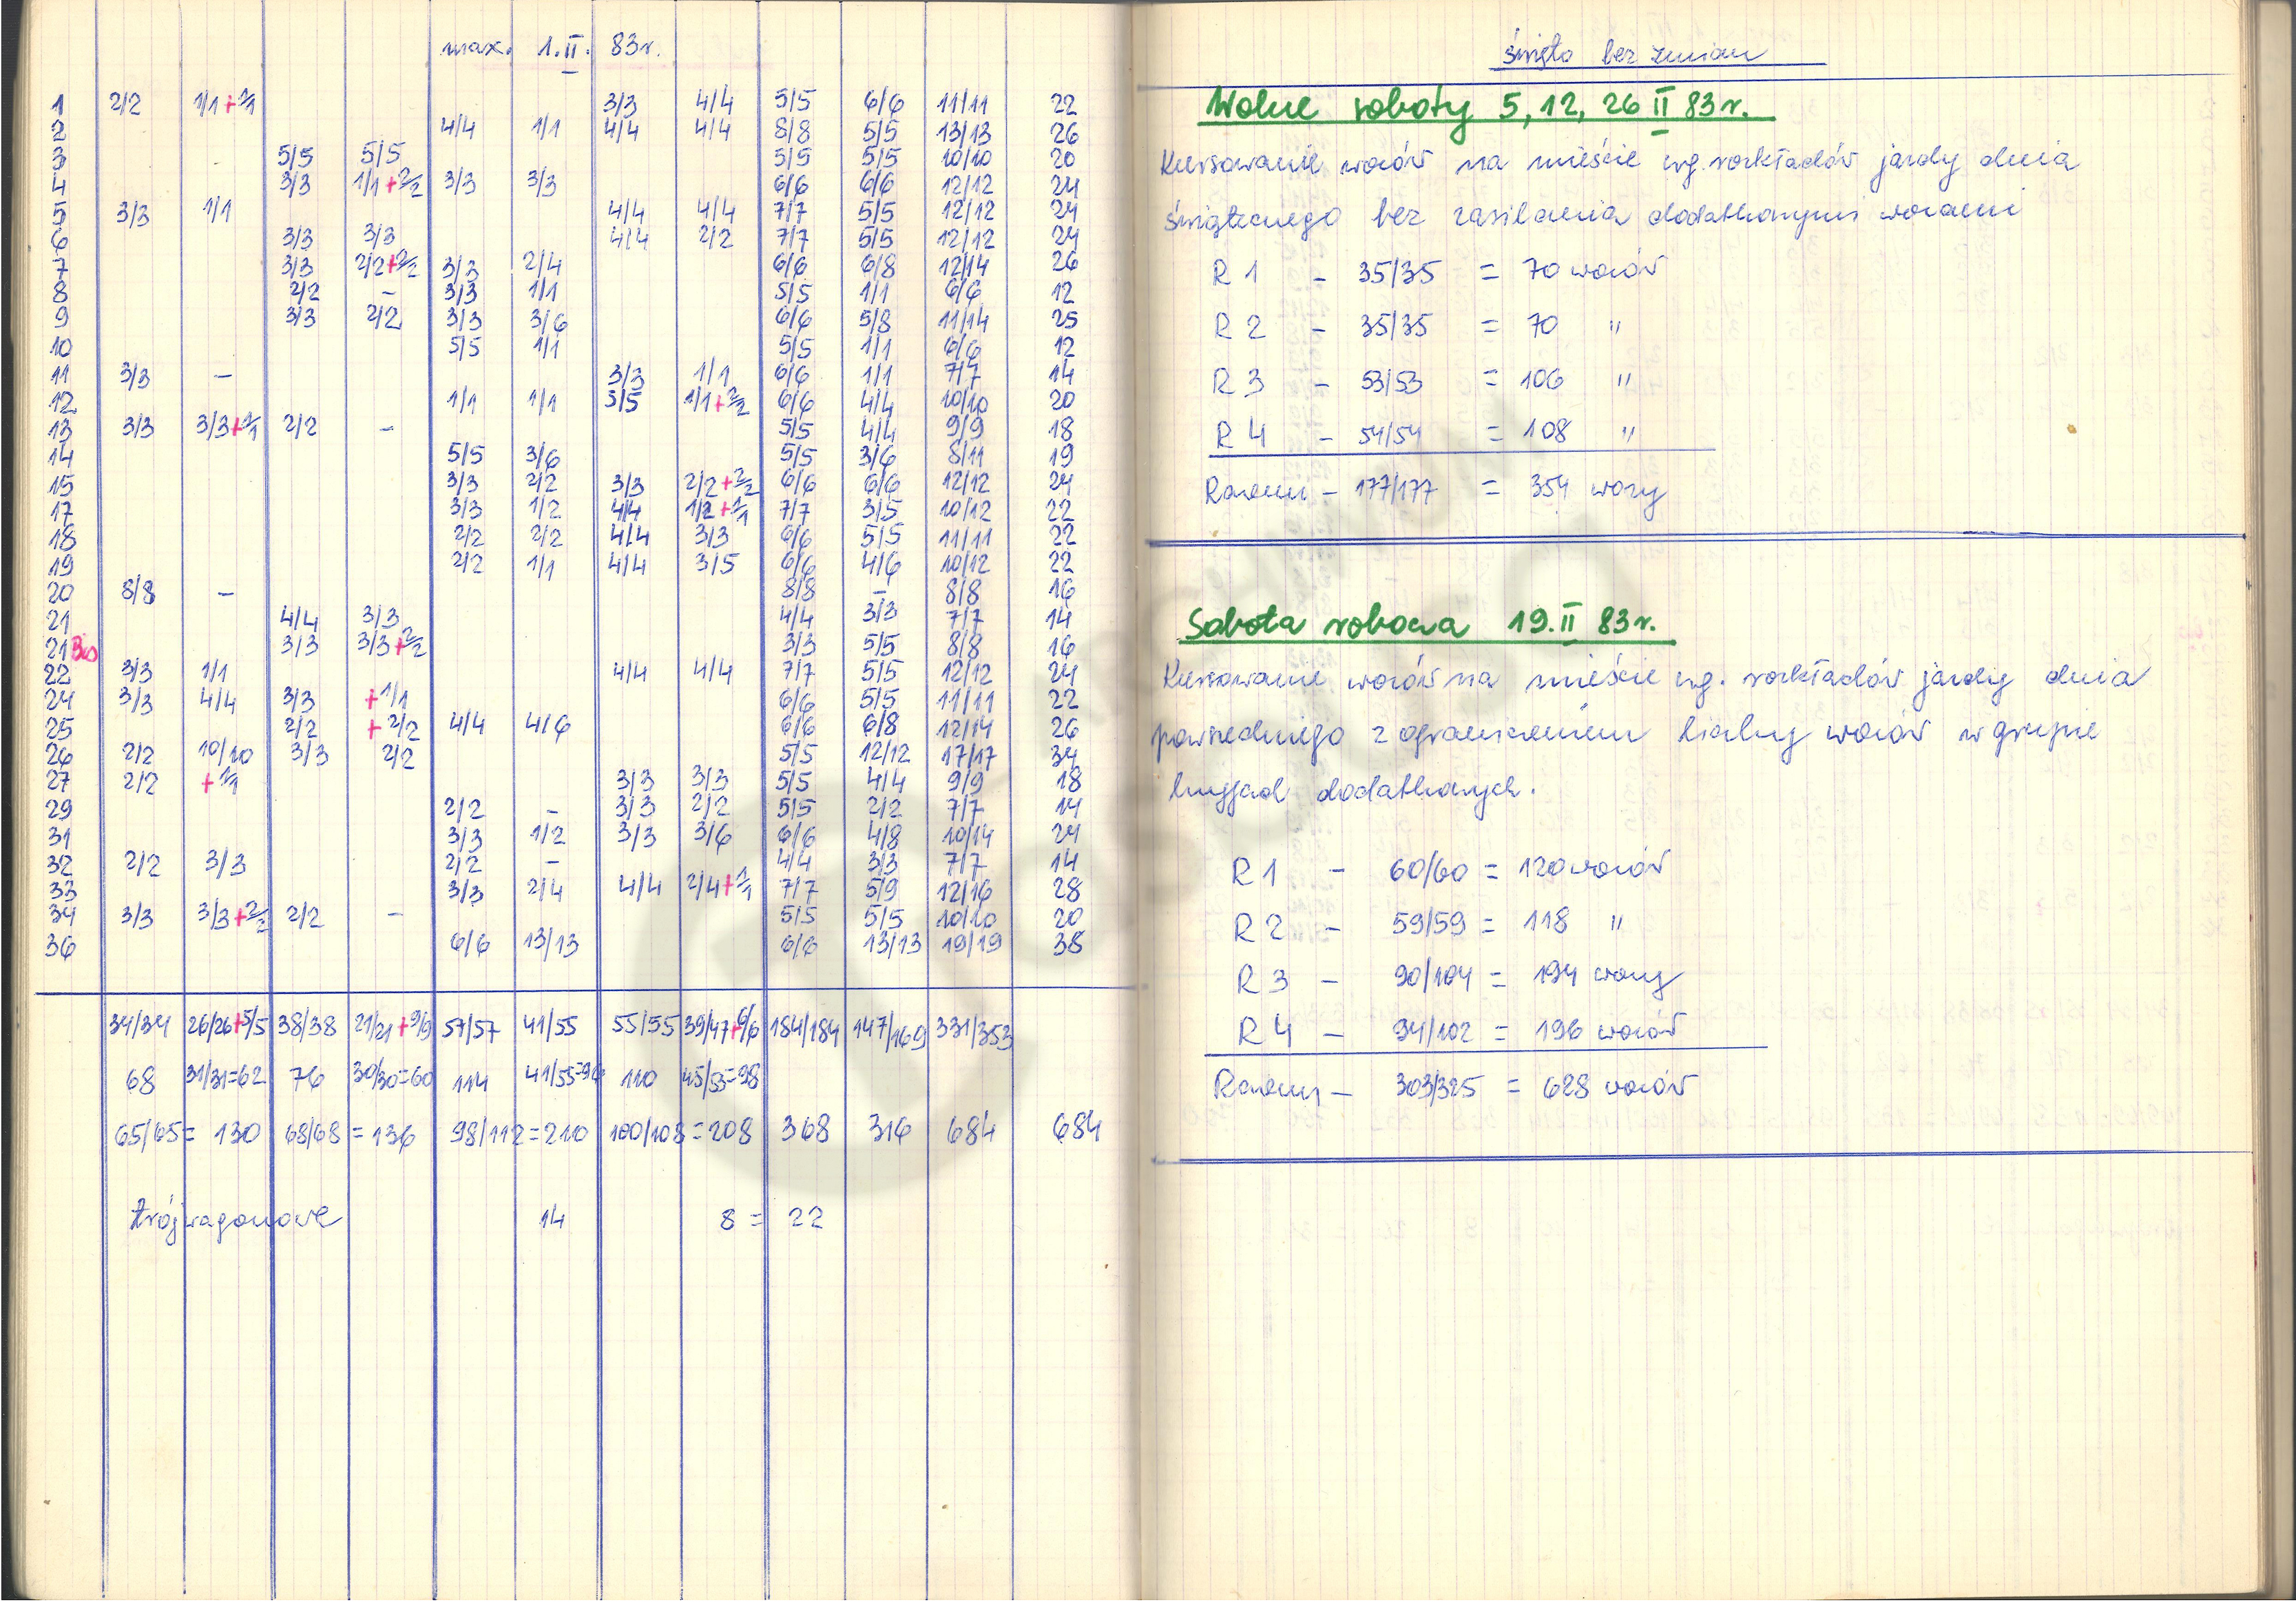 max. 1.II. 83r.
1 2/2 1/1+1/1 3/3 4/4 5/5 6/6 11/11 22
2 4/4 1/1 4/4 4/4 8/8 5/5 13/13 26
3 5/5 5/5 5/5 5/5 10/10 20
4 3/3 1/1+2/2 3/3 3/3 6/6 6/6 12/12 24
5 3/3 1/1 4/4 4/4 7/7 5/5 12/12 24
6 3/3 3/3 4/4 2/2 7/7 5/5 12/12 24
7 3/3 2/2+2/2 3/3 2/4 6/6 6/8 12/14 26
8 2/2 - 3/3 1/1 5/5 1/1 6/6 12
9 3/3 2/2 3/3 3/6 6/6 5/8 11/14 25
10 5/5 1/1 5/5 1/1 6/6 12
11 3/3 - 3/3 1/1 6/6 1/1 7/7 14
12 1/1 1/1 5/5 1/1+2/2 6/6 4/4 10/10 20
13 3/3 3/3+1/1 2/2 - 5/5 4/4 9/9 18
14 5/5 3/6 5/5 3/6 8/11 19
15 3/3 2/2 3/3 2/2+2/2 6/6 6/6 12/12 24
17 3/3 1/2 4/4 1/2+1/1 7/7 3/5 10/12 22
18 2/2 2/2 4/4 3/3 6/6 5/5 11/11 22
19 2/2 1/1 4/4 3/5 6/6 4/6 10/12 22
20 8/8 - 8/8 - 8/8 16
21 4/4 3/3 4/4 3/3 7/7 14
21 Bis 3/3 3/3+2/2 3/3 5/5 8/8 16
22 3/3 1/1 4/4 4/4 7/7 5/5 12/12 24
24 3/3 4/4 3/3 +1/1 6/6 5/5 11/11 22
25 2/2 +2/2 4/4 4/6 6/6 6/8 12/14 26
26 2/2 10/10 3/3 2/2 5/5 12/12 17/17 34
27 2/2 +1/1 3/3 3/3 5/5 4/4 9/9 18
29 2/2 - 3/3 2/2 5/5 2/2 7/7 14
31 3/3 1/2 3/3 3/6 6/6 4/8 10/14 24
32 2/2 3/3 2/2 - 4/4 3/3 7/7 14
33 3/3 2/4 4/4 2/4+1/1 7/7 5/9 12/16 28
34 3/3 3/3+2/2 2/2 - 5/5 5/5 10/10 20
36 6/6 13/13 6/6 13/13 19/19 38
34/34 26/26+5/5 38/38 21/21+9/9 57/57 41/55 55/55 39/47+6/6 184/184 147/169 331/353
68 31/31=62 76 30/30=60 114 41/55=96 110 45/53=98
65/65= 130 68/68 = 136 98/112=210 100/108=208 368 316 684 684
trójwagonowe 14 8 = 22
święto bez zmian
Wolne soboty 5, 12, 26 II 83r.
Kursowanie wozów na mieście wg. rozkładów jazdy dnia
świątecznego bez zasilania dodatkowymi wozami
R 1 - 35/35 = 70 wozów
R 2 - 35/35 = 70 "
R 3 - 53/53 = 106 "
R 4 - 54/54 = 108 "
Razem - 177/177 = 354 wozy
Sobota robocza 19.II 83r.
Kursowanie wozów na mieście wg. rozkładów jazdy dnia
powszedniego z ograniczeniem liczby wozów w grupie
dodatkowych.
R 1 - 60/60 = 120 wozów
R 2 - 59/59 = 118 "
R 3 - 90/104 = 194 wozy
R 4 - 94/102 = 196 wozów
Razem - 303/325 = 628 wozów